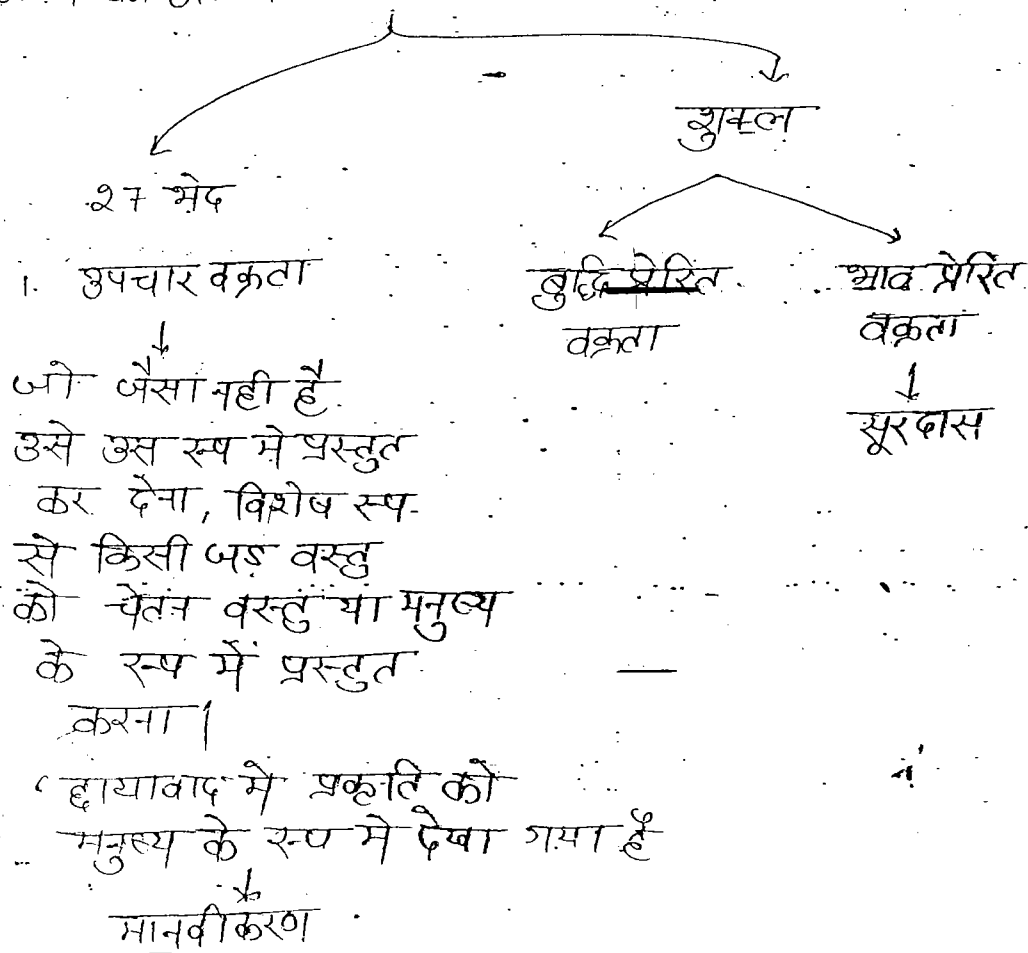 शुक्ल
२7 भेद
1. उपचार वक्रता
जो जैसा नही है
उसे उस रूप मे प्रस्तुत
कर देना, विशेष रूप
से किसी जड़ वस्तु
को चेतन वस्तु या मनुष्य
के रूप में प्रस्तुत
करना।
छायावाद मे प्रकृति को
मनुष्य के रूप मे देखा गया है
मानवीकरण
बुद्धि प्रेरित
वक्रता
भाव प्रेरित
वक्रता
सूरदास